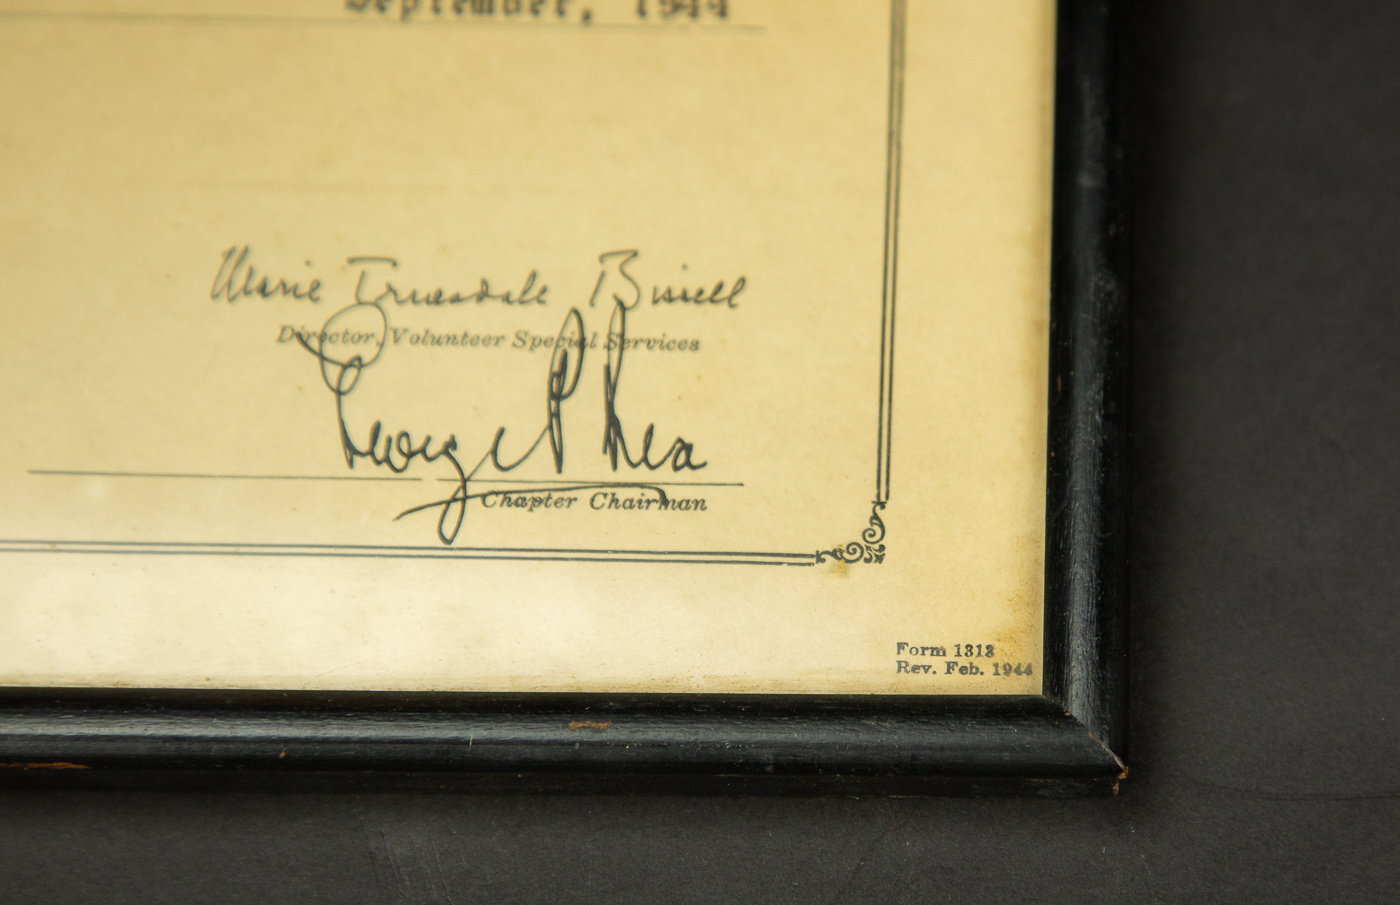 September, 1944
Marie Truesdale Bissell
Director, Volunteer Special Services
George P Rea
Chapter Chairman
Form 1313
Rev. Feb. 1944